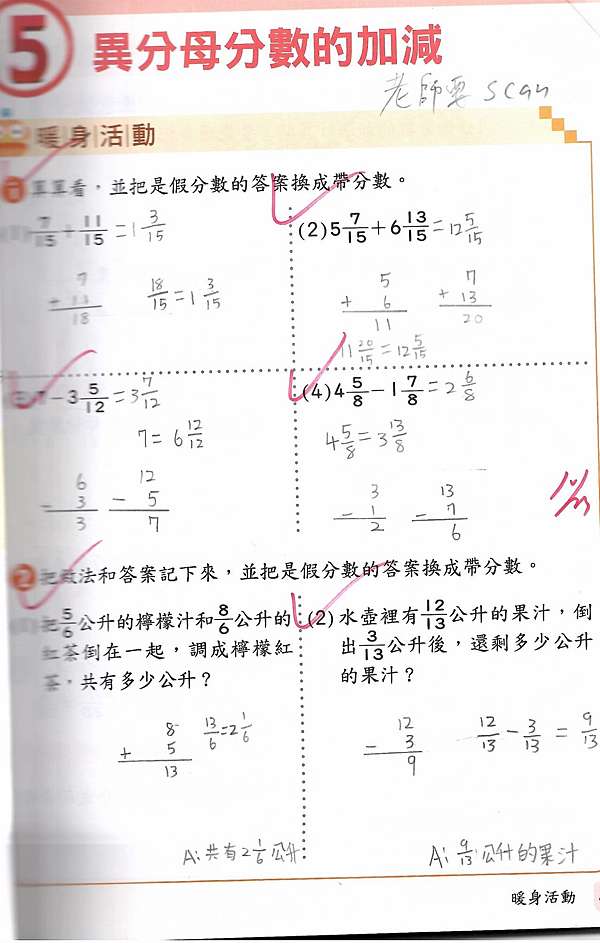 5 異分母分數的加減
老師要 scan
暖身活動
1 算算看，並把是假分數的答案換成帶分數。
7/15 + 11/15 = 1 3/15
7
+ 11
18
18/15 = 1 3/15
(2) 5 7/15 + 6 13/15 = 12 5/15
5
+ 6
11
7
+ 13
20
11 20/15 = 12 5/15
7 - 3 5/12 = 3 7/12
7 = 6 12/12
6
- 3
3
12
- 5
7
(4) 4 5/8 - 1 7/8 = 2 6/8
4 5/8 = 3 13/8
3
- 1
2
13
- 7
6
2 把做法和答案記下來，並把是假分數的答案換成帶分數。
把 5/6 公升的檸檬汁和 8/6 公升的
紅茶倒在一起，調成檸檬紅
茶，共有多少公升？
8
+ 5
13
13/6 = 2 1/6
A: 共有 2 1/6 公升
(2) 水壺裡有 12/13 公升的果汁，倒
出 3/13 公升後，還剩多少公升
的果汁？
12
- 3
9
12/13 - 3/13 = 9/13
A: 9/13 公升的果汁
暖身活動